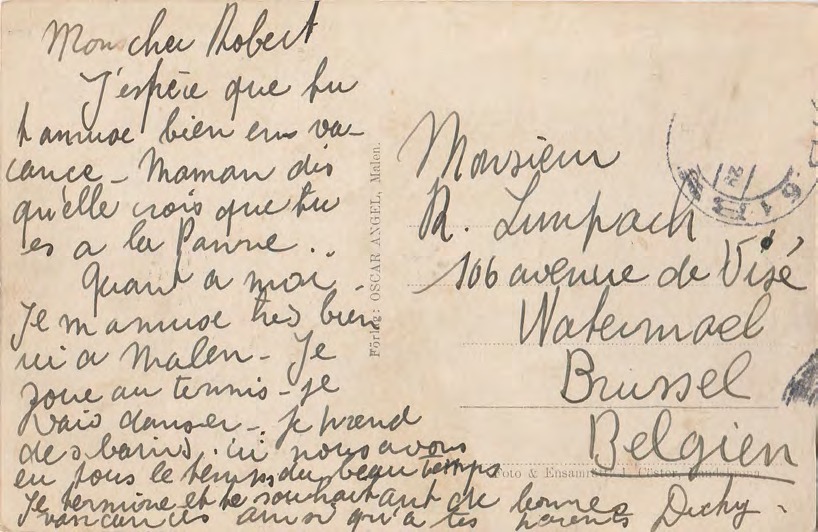 Mon cher Robert
J'espère que tu
t amuse bien en va-
cance - Maman dis
qu'elle crois que tu
es a la Panne ..
quant a moi -
Je m amuse très bien
ici a Malen - Je
joue au tennis - je
vais danser - je prend
des bains. ici nous avons
eu tous le temps du beau temps
Je termine et te souhaitant de bonnes
vancances ainsi qu'a tes parents Dichy -
Förlag: OSCAR ANGEL, Malen.
Monsieur
R. Limpach
106 avenue de Visé
Watermael
Brussel
Belgien
Foto & Ensamrätt